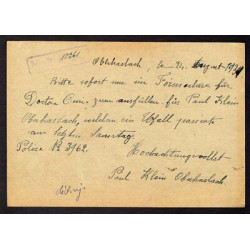 Oberhaslach, 21. August 1939
Bitte sofort um ein Formulare für
Doctor zum ausfüllen, für Paul Klein
Oberhaslach, welchen ein Unfall passirte
am letzten Samstag.
Police 3962.
Hochachtungsvollst
Paul Klein Oberhaslach